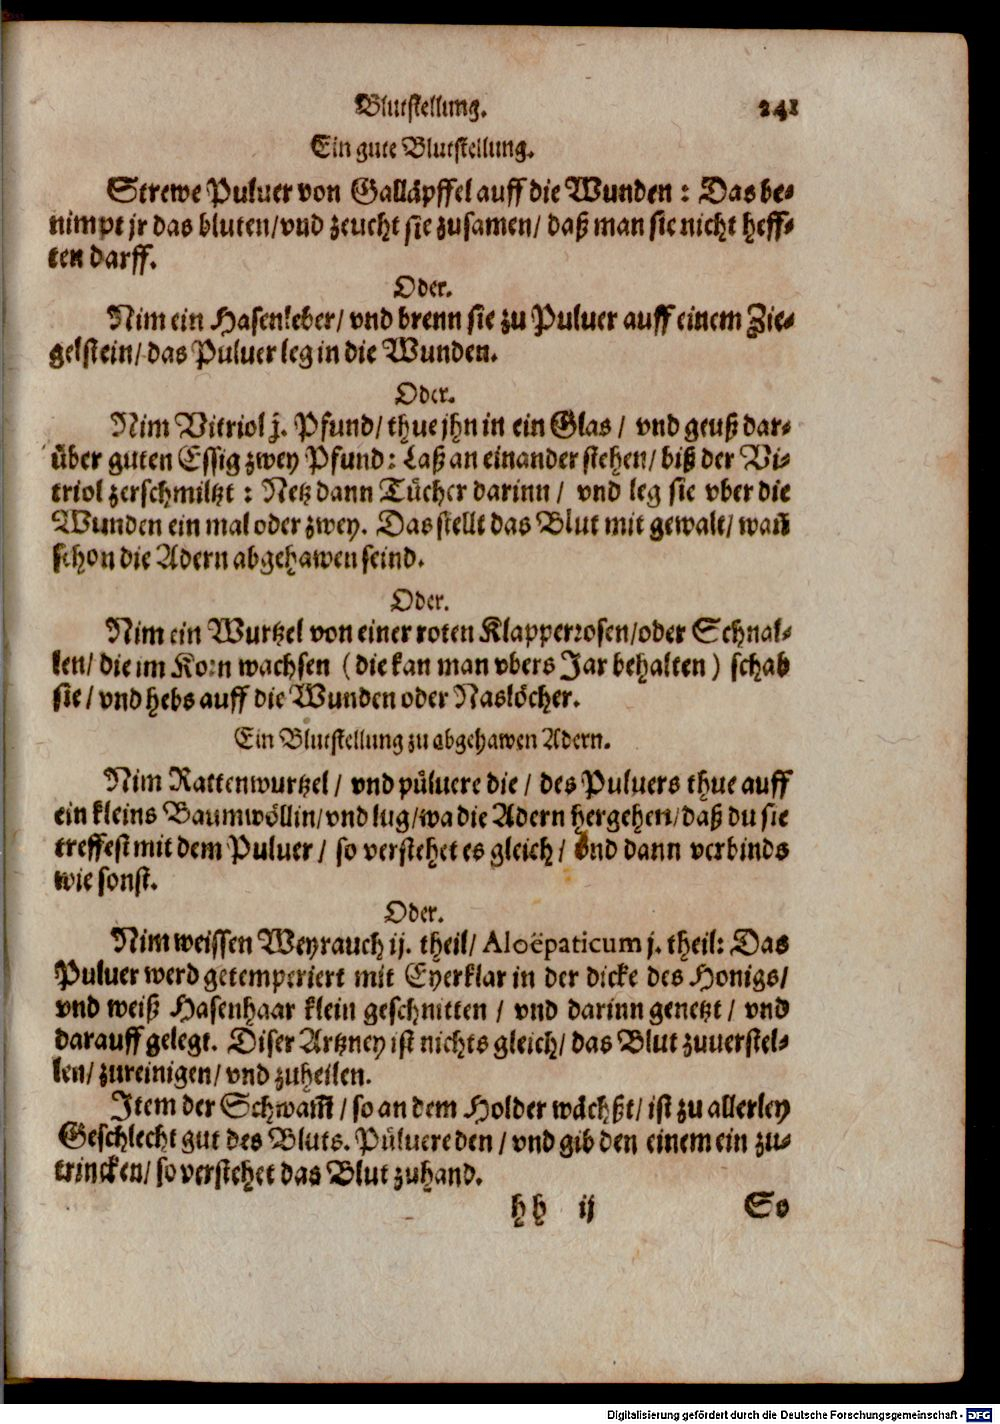 Blutstellung. 241
Ein gute Blutstellung.
Strewe Puluer von Galläpffel auff die Wunden : Das be-
nimpt jr das bluten/vnd zeucht sie zusamen/ daß man sie nicht heff-
ten darff.
Oder.
Nim ein Hasenleber/ vnd brenn sie zu Puluer auff einem Zie-
gelstein/ das Puluer leg in die Wunden.
Oder.
Nim Vitriol j. Pfund/ thue jhn in ein Glas / vnd geuß dar-
über guten Essig zwey Pfund: Laß an einander stehen/ biß der Vi-
triol zerschmiltzt : Netz dann Tücher darinn / vnd leg sie vber die
Wunden ein mal oder zwey. Das stellt das Blut mit gewalt/ wañ
schon die Adern abgehawen seind.
Oder.
Nim ein Wurtzel von einer roten Klapperrosen/oder Schnal-
len/ die im Korn wachsen (die kan man vbers Jar behalten) schab
sie / vnd hebs auff die Wunden oder Naslöcher.
Ein Blutstellung zu abgehawen Adern.
Nim Rattenwurtzel / vnd pülvere die / des Puluers thue auff
ein kleins Baumwöllin/vnd lug/wa die Adern hergehen/daß du sie
treffest mit dem Puluer / so verstehet es gleich / vnd dann verbinds
wie sonst.
Oder.
Nim weissen Weyrauch ij. theil/ Aloëpaticum j. theil: Das
Puluer werd getemperiert mit Eyerklar in der dicke des Honigs/
vnd weiß Hasenhaar klein geschnitten / vnd darinn genetzt / vnd
darauff gelegt. Diser Artzney ist nichts gleich/ das Blut zuuerstel-
len/ zureinigen/ vnd zuheilen.
Item der Schwam̃ / so an dem Holder wächßt/ ist zu allerley
Geschlecht gut des Bluts. Püluere den / vnd gib den einem ein zu-
trincken/ so verstehet das Blut zuhand.
hh ij So
Digitalisierung gefördert durch die Deutsche Forschungsgemeinschaft - DFG